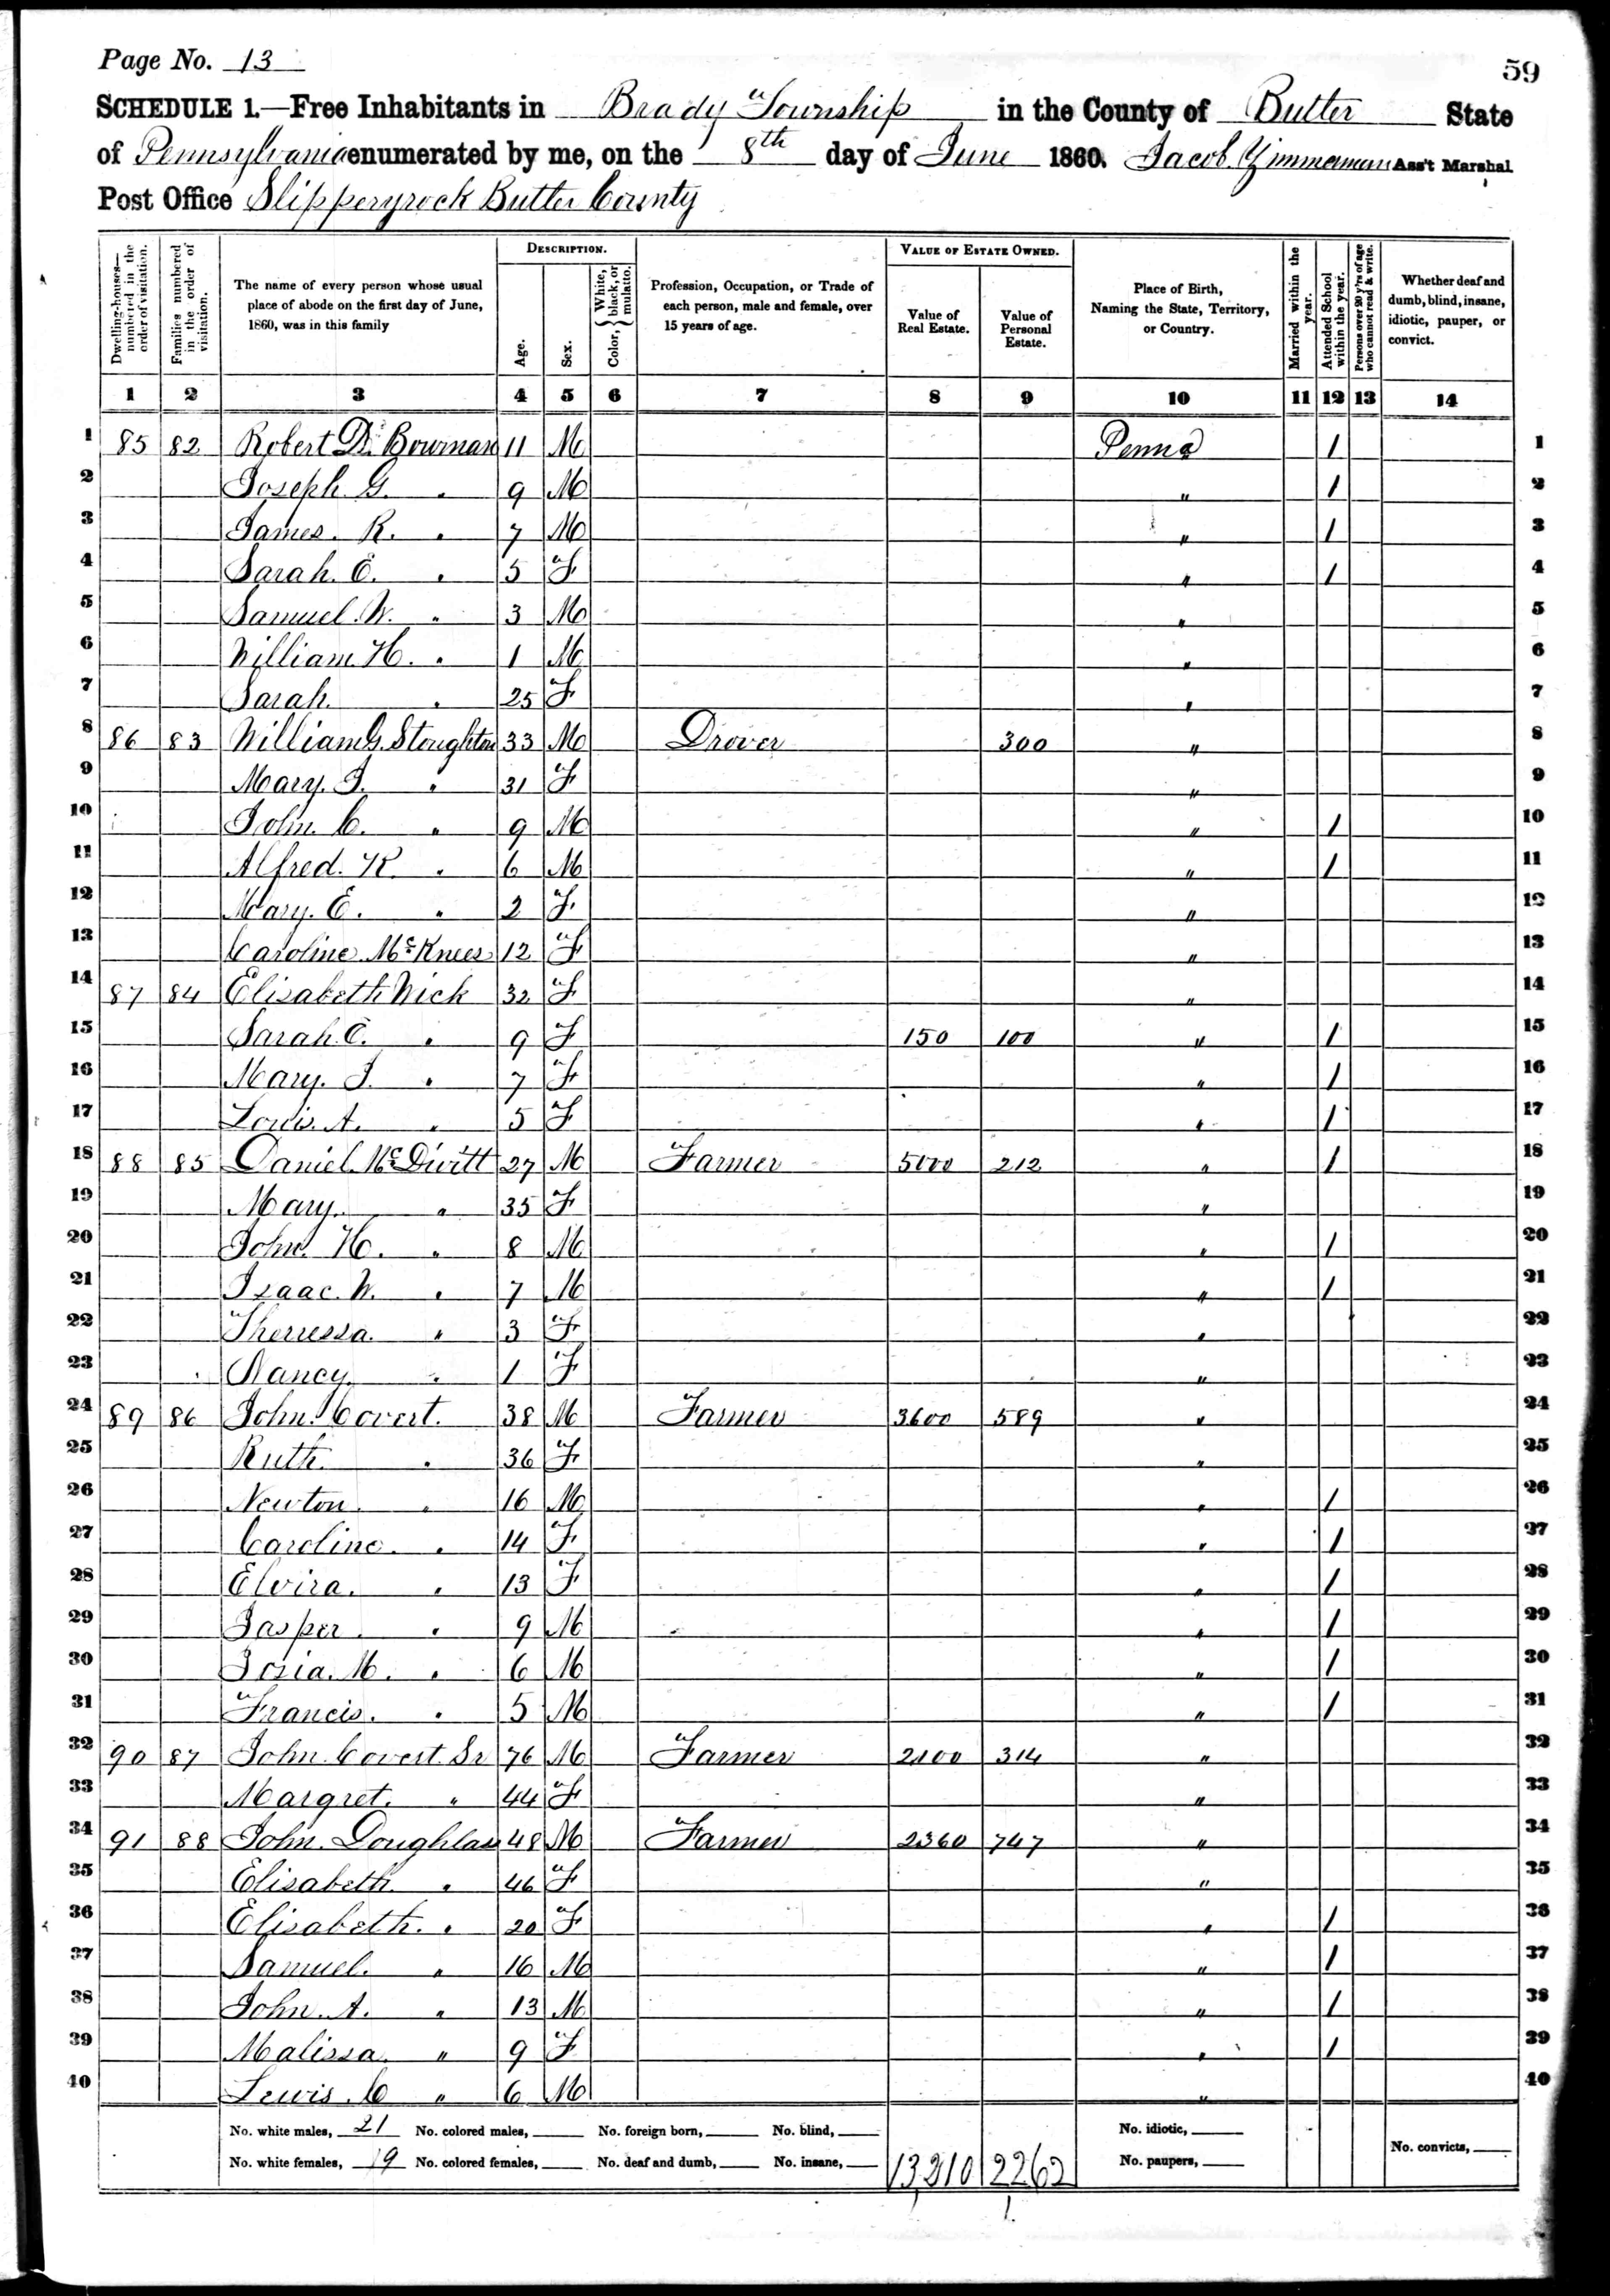 Page No. 13
59
SCHEDULE 1.—Free Inhabitants in Brady Township in the County of Butler State
of Pennsylvania enumerated by me, on the 8th day of June 1860. Jacob Zimmerman Ass't Marshal
Post Office Slipperyrock Butler County
Dwelling-houses—numbered in the order of visitation.
Families numbered in the order of visitation.
The name of every person whose usual place of abode on the first day of June, 1860, was in this family
DESCRIPTION.
Age.
Sex.
Color, { White, black, or mulatto.
Profession, Occupation, or Trade of each person, male and female, over 15 years of age.
VALUE OF ESTATE OWNED.
Value of Real Estate.
Value of Personal Estate.
Place of Birth, Naming the State, Territory, or Country.
Married within the year.
Attended School within the year.
Persons over 20 y'rs of age who cannot read & write.
Whether deaf and dumb, blind, insane, idiotic, pauper, or convict.
1 2 3 4 5 6 7 8 9 10 11 12 13 14
1 85 82 Robert D. Bowman 11 M Penna 1 1
2 Joseph G. " 9 M " 1 2
3 James. R. " 7 M " 1 3
4 Sarah. E. " 5 F " 1 4
5 Samuel. W. " 3 M " 5
6 William. H. " 1 M " 6
7 Sarah. " 25 F " 7
8 86 83 William G. Stoughton 33 M Drover 300 " 8
9 Mary. J. " 31 F " 9
10 John. C. " 9 M " 1 10
11 Alfred. K. " 6 M " 1 11
12 Mary. E. " 2 F " 12
13 Caroline. McKnees 12 F " 13
14 87 84 Elisabeth Wick 32 F " 14
15 Sarah. E. " 9 F 150 100 " 1 15
16 Mary. J. " 7 F " 1 16
17 Louis. A. " 5 F " 1 17
18 88 85 Daniel. McDivitt 27 M Farmer 5000 212 " 1 18
19 Mary. " 35 F " 19
20 John. H. " 8 M " 1 20
21 Isaac. W. " 7 M " 1 21
22 Therressa. " 3 F " 22
23 Nancy. " 1 F " 23
24 89 86 John. Covert. 38 M Farmer 3600 589 " 24
25 Ruth. " 36 F " 25
26 Newton. " 16 M " 1 26
27 Caroline. " 14 F " 1 27
28 Elvira. " 13 F " 1 28
29 Jasper. " 9 M " 1 29
30 Josia. M. " 6 M " 1 30
31 Francis. " 5 M " 1 31
32 90 87 John. Covert. Sr 76 M Farmer 2100 314 " 32
33 Margret. " 44 F " 33
34 91 88 John. Doughlass 48 M Farmer 2360 747 " 34
35 Elisabeth. " 46 F " 35
36 Elisabeth. " 20 F " 1 36
37 Samuel. " 16 M " 1 37
38 John. A. " 13 M " 1 38
39 Malissa. " 9 F " 1 39
40 Lewis. C " 6 M " 40
No. white males, 21 No. colored males, No. foreign born, No. blind, No. idiotic,
No. white females, 19 No. colored females, No. deaf and dumb, No. insane, 13,210 2262 No. paupers, No. convicts,